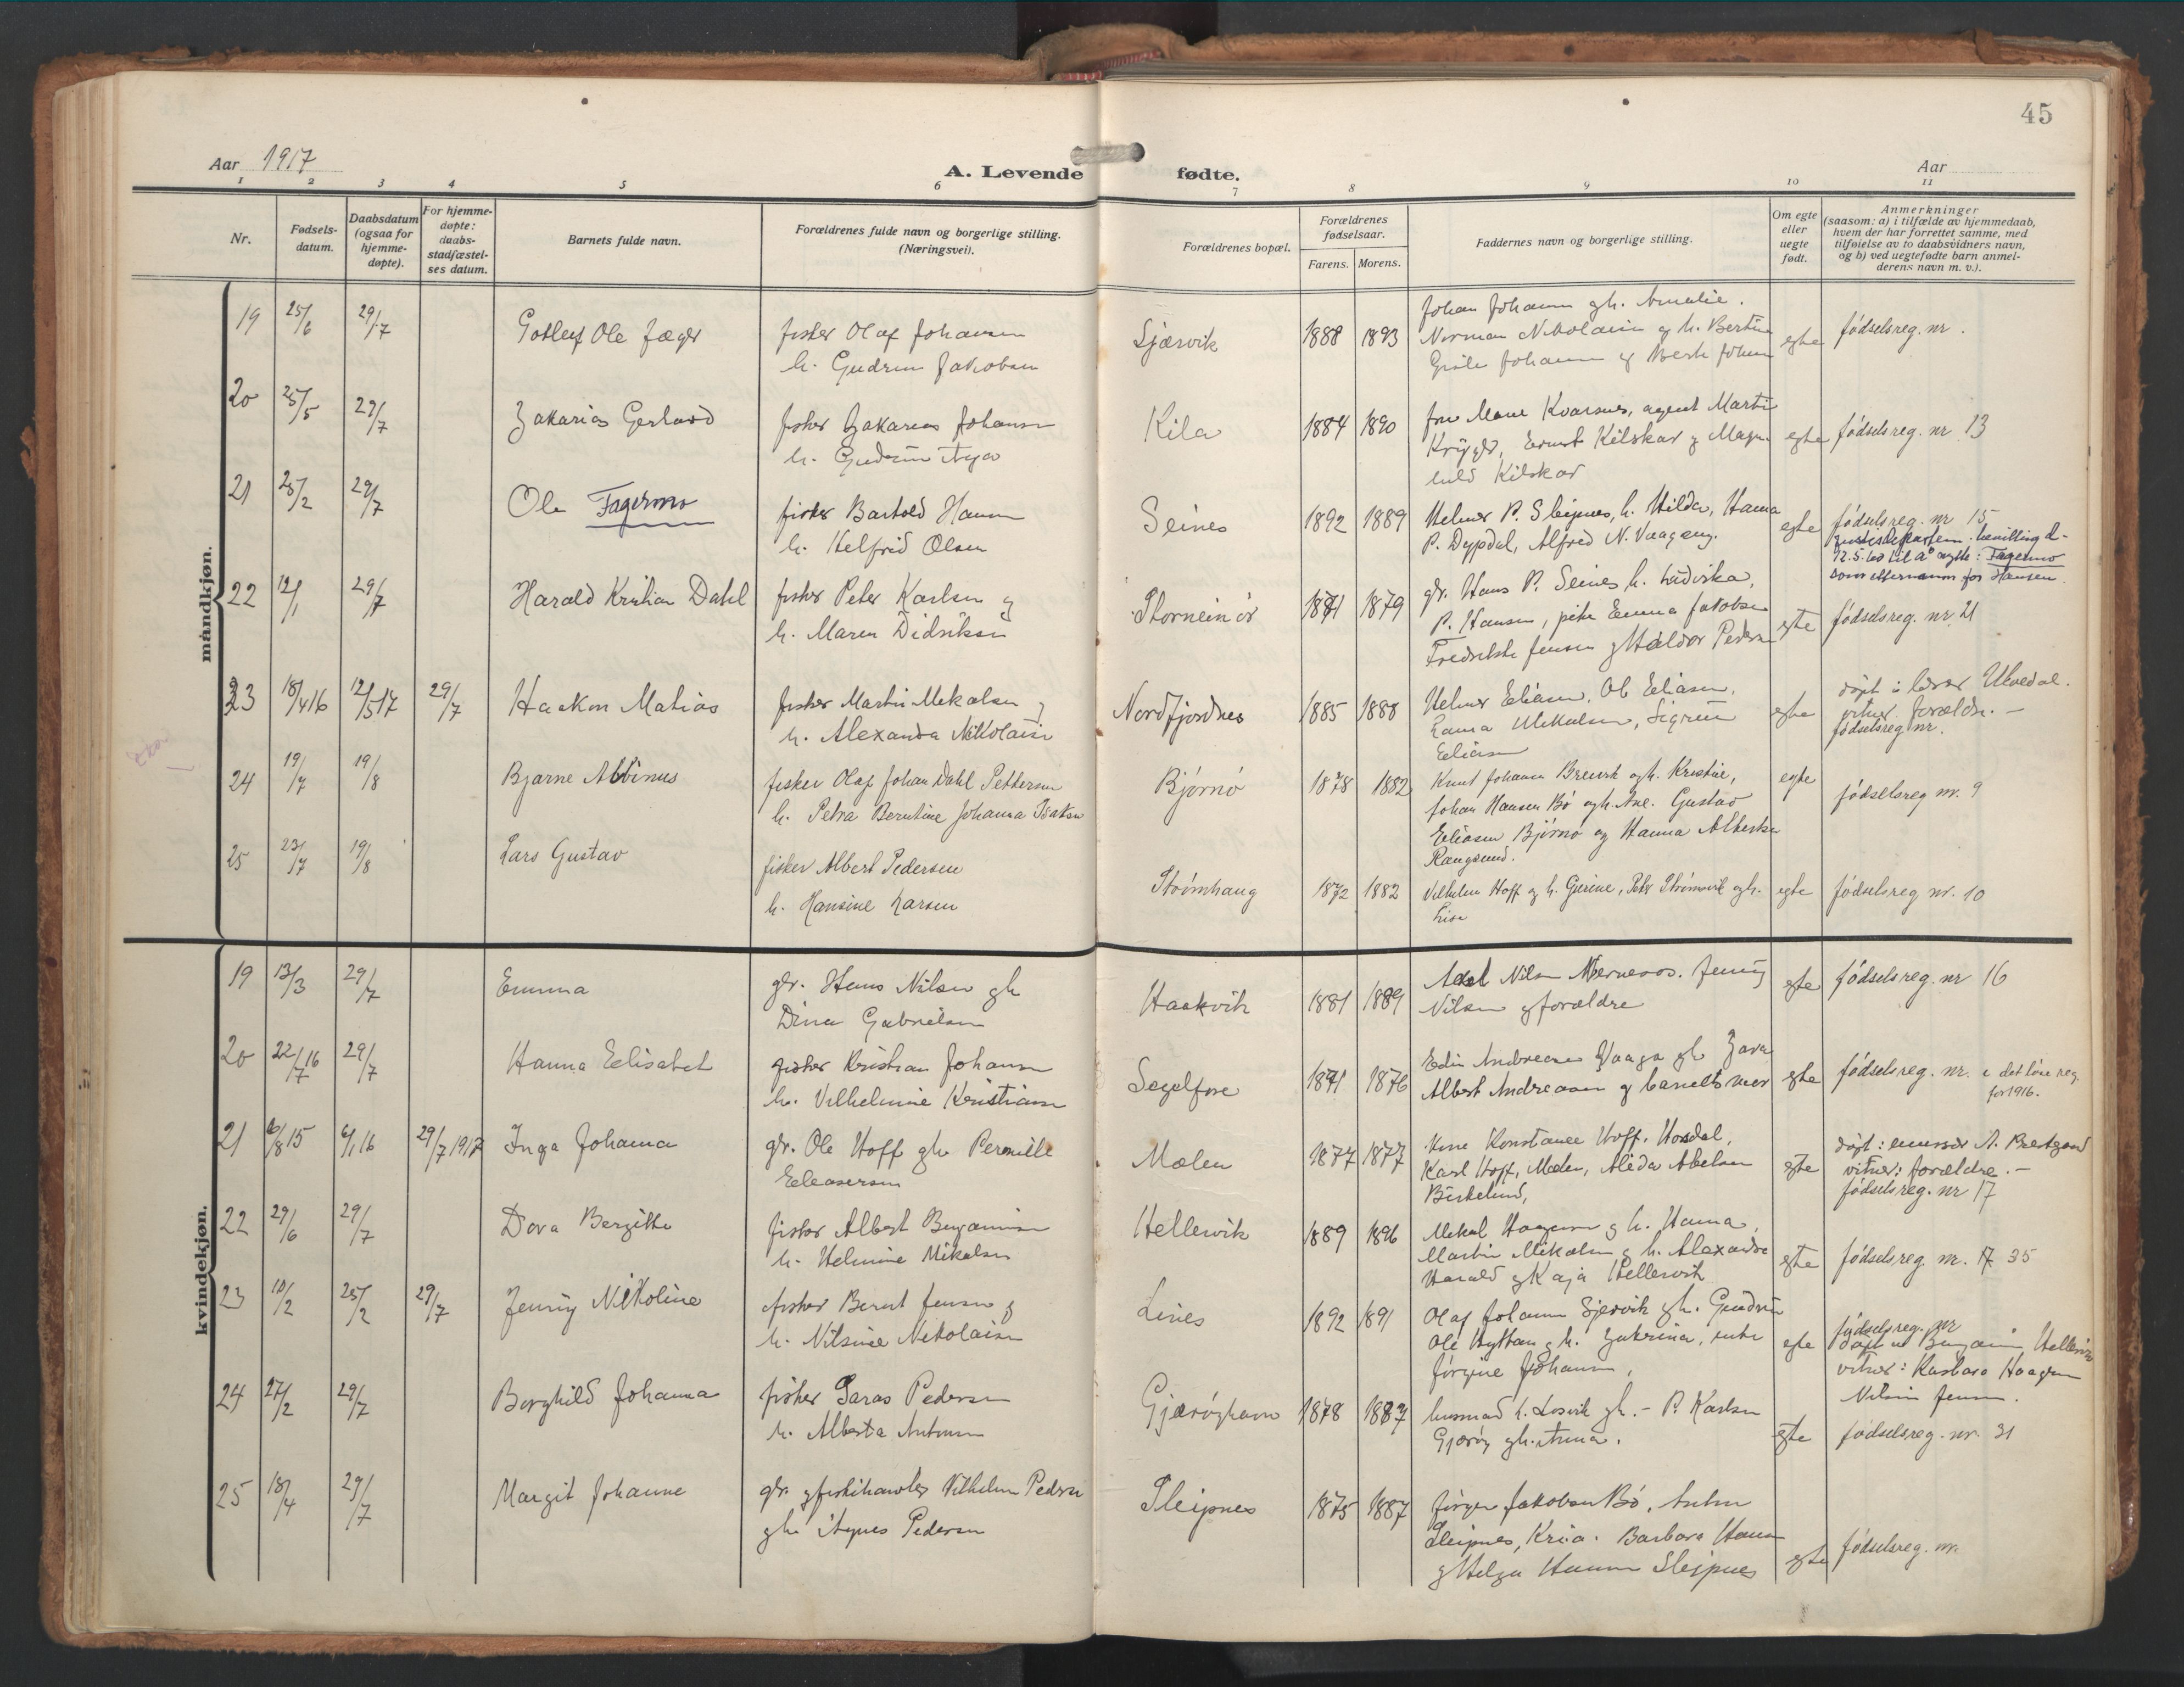 45
Aar 1917
A. Levende fødte.
Aar
1 2 3 4 5 6 7 8 9 10 11
Nr.
Fødsels-
datum.
Daabsdatum
(ogsaa for
hjemme-
døpte).
For hjemme-
døpte:
daabs-
stadfæstel-
ses datum.
Barnets fulde navn.
Forældrenes fulde navn og borgerlige stilling.
(Næringsvei).
Forældrenes bopæl.
Forældrenes
fødselsaar.
Farens. Morens.
Faddernes navn og borgerlige stilling.
Om egte
eller
uegte
født.
Anmerkninger
(saasom: a) i tilfælde av hjemmedaab,
hvem der har forrettet samme, med
tilføielse av to daabsvidners navn,
og b) ved uegtefødte barn anmel-
derens navn m. v.).
måndkjøn.
19 25/6 29/7 Ole Jæger fisker Olaf Johansen Sjærvik 1888 1893 Johan Johansen gh. Amalie. egte fødselsreg. nr.
h. Gudrun Jakobsen
20 25/5 29/7 Zakarias Gerhard fisker Zakarias Johansen Kila 1884 1890 fru Kvarsnes, agent egte fødselsreg. nr 13
h. Gudrun
Ernst Kilskar
Kilskar
21 25/2 29/7 Ole Fagermo fisker Bartold Hansen Seines 1892 1889 Helmer P. Sleipnes, h. Hilda, Hanna egte fødselsreg. nr 15
h. Helfrid Olsen
P. Dypdal, Alfred N. Vaageng.
Fagermo
som efternavn for Hansen.
22 12/1 29/7 Harald Kristian Dahl fisker Peter Karlsen og 1879 gr. Hans P. Seines h. Ludvika, egte fødselsreg. nr 21
h. Maren Didriksen
P. Hansen, pike Emma Jakobsen
Jensen g Haldor Pedersen
23 18/4 16 12/5 17 29/7 Haakon Matias fisker Martin Mekalsen og Nordfjordnes 1885 1888 Helmer Eliasen, Ole Eliasen, egte
h. Alexanda Nikolaisen
Mikalsen, Sigrun
Eliasen
vitner. forældre. -
fødselsreg. nr.
24 19/7 19/8 Bjarne Albinus fisker Olaf Johan Dahl Pettersen Bjørnø 1878 1882 Knut Johansen ogh. Kristine, egte fødselsreg nr. 9
h. Petra Berntine Johanna Isaksen
Johan Hansen Bø ogh. Ane. Gustav
Eliasen Bjørnø og Hanna
25 23/7 19/8 Lars Gustav fisker Albert Pedersen Strømhaug 1872 1882 Vilhelm Hoff og h. Gjerine, Petr Strømsvik ogh. egte fødselsreg nr. 10
h. Hansine Larsen
Lise
kvindekjøn.
19 13/3 29/7 Emma gbr. Hans Nilsen gh Haakvik 1881 1889 Nilsen Jenny egte fødselsreg. nr 16
Dina Gabrielsen
Nilsen g forældre
20 22/7 16 29/7 Hanna Elisabet fisker Kristian Johansen Segelfore 1871 1876 Edin Andreasen Vaaga gh egte fødselsreg. nr. i det løse reg.
for 1916.
h. Vilhelmine Kristiansen
Albert Andreasen g barnets mor
21 6/8 15 6/1 16 29/7 1917 Inga Johanna gr. Ole Hoff gh Pernille Mælen 1877 1877 Konstance Hoff. egte
Eleasersen
Karl Hoff, Mælen, Alida Abelsen
Birkelund,
vitner: forældre. -
fødselsreg. nr 17
22 29/6 29/7 Dora Bergitte fisker Albert Benjaminsen Hellervik 1889 1896 Mekal Haagensen g h. Hanna, egte fødselsreg. nr. 17 35
h. Helmine Mikalsen
Martin Mikalsen g h. Alexandra
Harald g Kaja Hellervik
23 10/2 25/2 29/7 Jenny Nikoline fisker Bernt Jensen g Lines 1892 1891 Olaf Johansen Sjervik gh. Gudrun egte fødselsreg. nr
h. Nilsine Nikolaisen
Ole g h. Zakrina, enke
Jørgine Johansen,
døpt av Benjamin Hellervik
vitner: Haagensen
Jensen.
24 27/2 29/7 Borghild Johanna fisker Pedersen Gjærøyhavn 1878 1887 gh. - P. Karlsen egte fødselsreg. nr. 31
h. Alberta Antonsen
Gjærøy gh. Anna.
25 18/4 29/7 Margit Johanne gbr. g fiskehandler Vilhelm Pedersen Sleipnes 1875 1887 Jørgen Jakobsen Bø, Anton egte fødselsreg. nr.
gh. Agnes Pedersen
Sleipnes, Barbara Hansen
g Helga Hansen Sleipnes